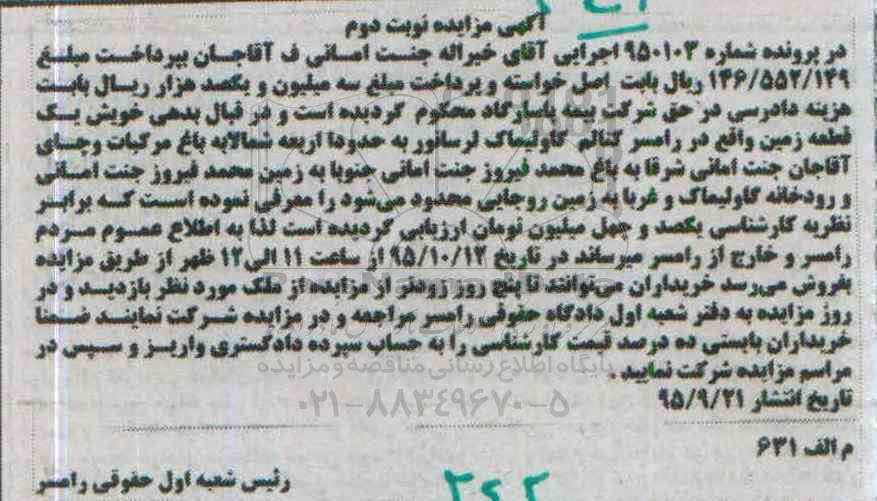 آگهی مزایده نوبت دوم
در پرونده شماره ۹۵۰۱۰۳ اجرایی آقای خیراله جنت امانی ف آقاجان بپرداخت مبلغ
۱۴۶/۵۵۲/۱۴۹ ریال بابت اصل خواسته و پرداخت مبلغ سه میلیون و یکصد هزار ریال بابت
هزینه دادرسی در حق شرکت بیمه پاسارگاد محکوم گردیده است و در قبال بدهی خویش یک
قطعه زمین واقع در رامسر کتالم گاولیماک لرسانور به حدودا اربعه شمالابه باغ مرکبات وچای
آقاجان جنت امانی شرقا به باغ محمد فیروز جنت امانی جنوبا به زمین محمد فیروز جنت امانی
و رودخانه گاولیماک و غربا به زمین روجایی محدود می‌شود را معرفی نموده است که برابر
نظریه کارشناسی یکصد و چهل میلیون تومان ارزیابی گردیده است لذا به اطلاع عموم مردم
رامسر و خارج از رامسر میرساند در تاریخ ۹۵/۱۰/۱۲ از ساعت ۱۱ الی ۱۲ ظهر از طریق مزایده
بفروش می‌رسد خریداران می‌توانند تا پنج روز زودتر از مزایده از ملک مورد نظر بازدید و در
روز مزایده به دفتر شعبه اول دادگاه حقوقی رامسر مراجعه و در مزایده شرکت نمایند ضمنا
خریداران بایستی ده درصد قیمت کارشناسی را به حساب سپرده دادگستری واریز و سپس در
مراسم مزایده شرکت نمایید .
پایگاه اطلاع رسانی مناقصه و مزایده
تاریخ انتشار ۹۵/۹/۲۱
۰۲۱-۸۸۳۴۹۶۷۰-۵
م الف ۶۳۱
رئیس شعبه اول حقوقی رامسر